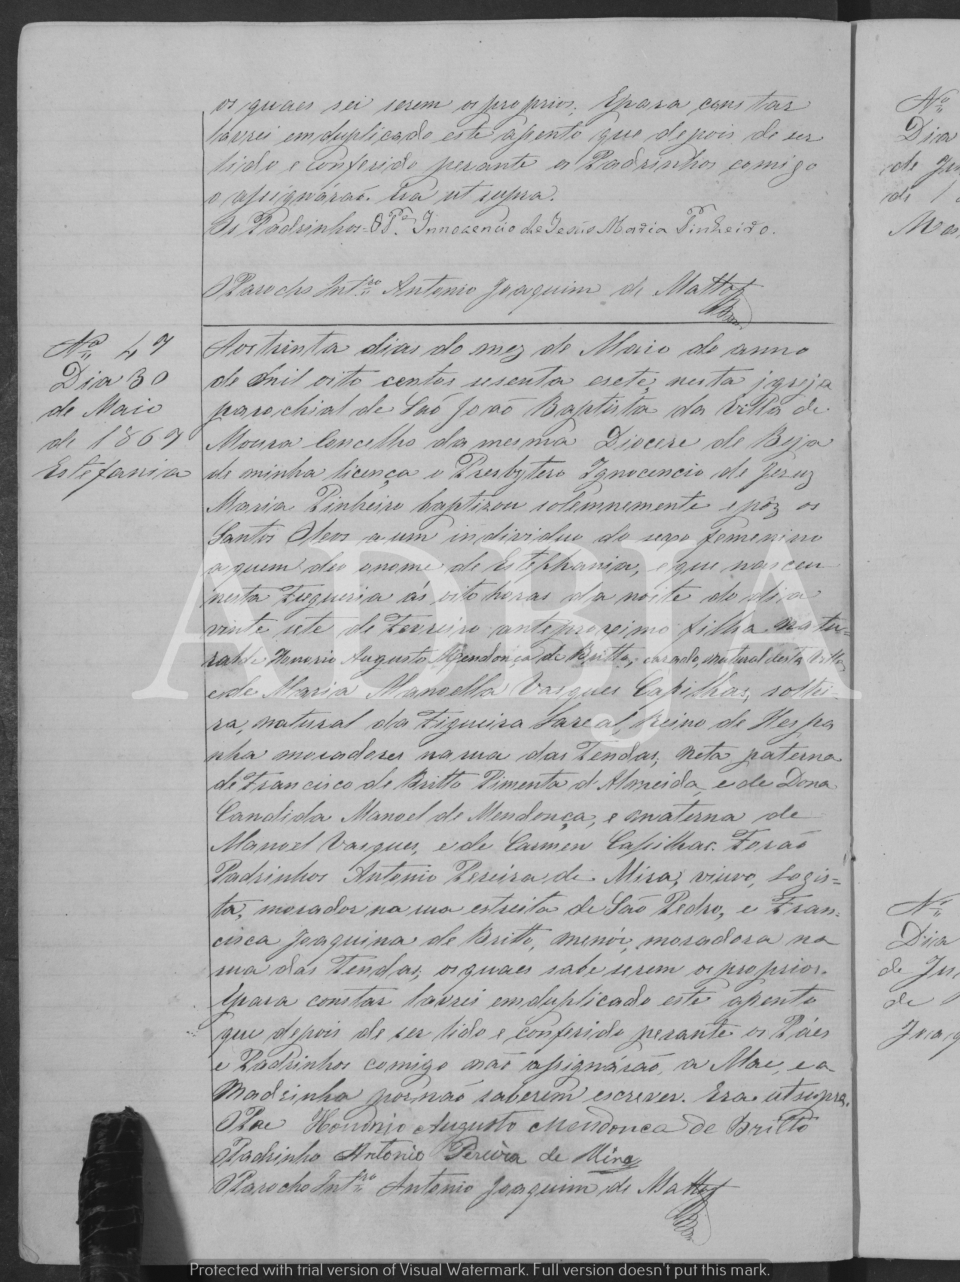 os quaes sei serem os proprios. Epara constar
lavrei emduplicado este aſsento que depois de ser
lido e conferido perante os Padrinhos comigo
o aſsignáraõ. Era ut supra.
Os Padrinhos = O Pe. Innocencio de Jesus Maria Pinheiro.
O Parocho Intro Antonio Joaquim de Mattos
No 47
Dia 30
de Maio
de 1867
Estefania
Aos trinta dias do mez de Maio do anno
de mil oito centos sesenta esete, nesta igreja
parochial de Saõ Joaõ Baptista da Villa de
Moura Concelho da mesma Diocese de Beja
de minha licença o Presbytero Ignocencio de Jesus
Maria Pinheiro baptizou solemnemente e pôz os
Santos Oleos a um individuo do sexo femenino
a quem deo o nome de Estephania, e que nasceu
nesta Freguesia ás oito horas da noite do dia
vinte sete de Fevreiro anteproximo filha natu=
ral de Honorio Augusto Mendonça de Britto, casado, natural desta Villa
e de Maria Manoella Vasques Casilhas, soltei=
ra, natural da Figueira Lareal Reino de Hespa
nha moradores na rua das Tendas, neta paterna
de Francisco de Britto Pimenta d'Almeida e de Dona
Candida Manoel de Mendonça, e materna de
Manoel Vasques, e de Carmen Casilhas. Foraõ
Padrinhos Antonio Pereira de Mira, viuvo, Logis=
ta, morador na rua estreita de Saõ Pedro, e Fran=
cisca Joaquina de Britto, menór, moradora na
rua das Tendas, os quaes sabe serem os proprios.
Epara constar lavrei emduplicado este aſsento
que depois de ser lido e conferido perante os Páes
e Padrinhos comigo naõ aſsignáraõ, a Mae, e a
Madrinha por naõ saberem escrever. Era ut supra.
O Pae Honório Augusto Mendonca de Britto
Padrinho Antonio Pereira de Mira
O Parocho Intro Antonio Joaquim de Mattos
No
Dia
de Jun
de 1
Mar
No
Dia
de Ju
de
Joaq
ADBJA
Protected with trial version of Visual Watermark. Full version doesn't put this mark.